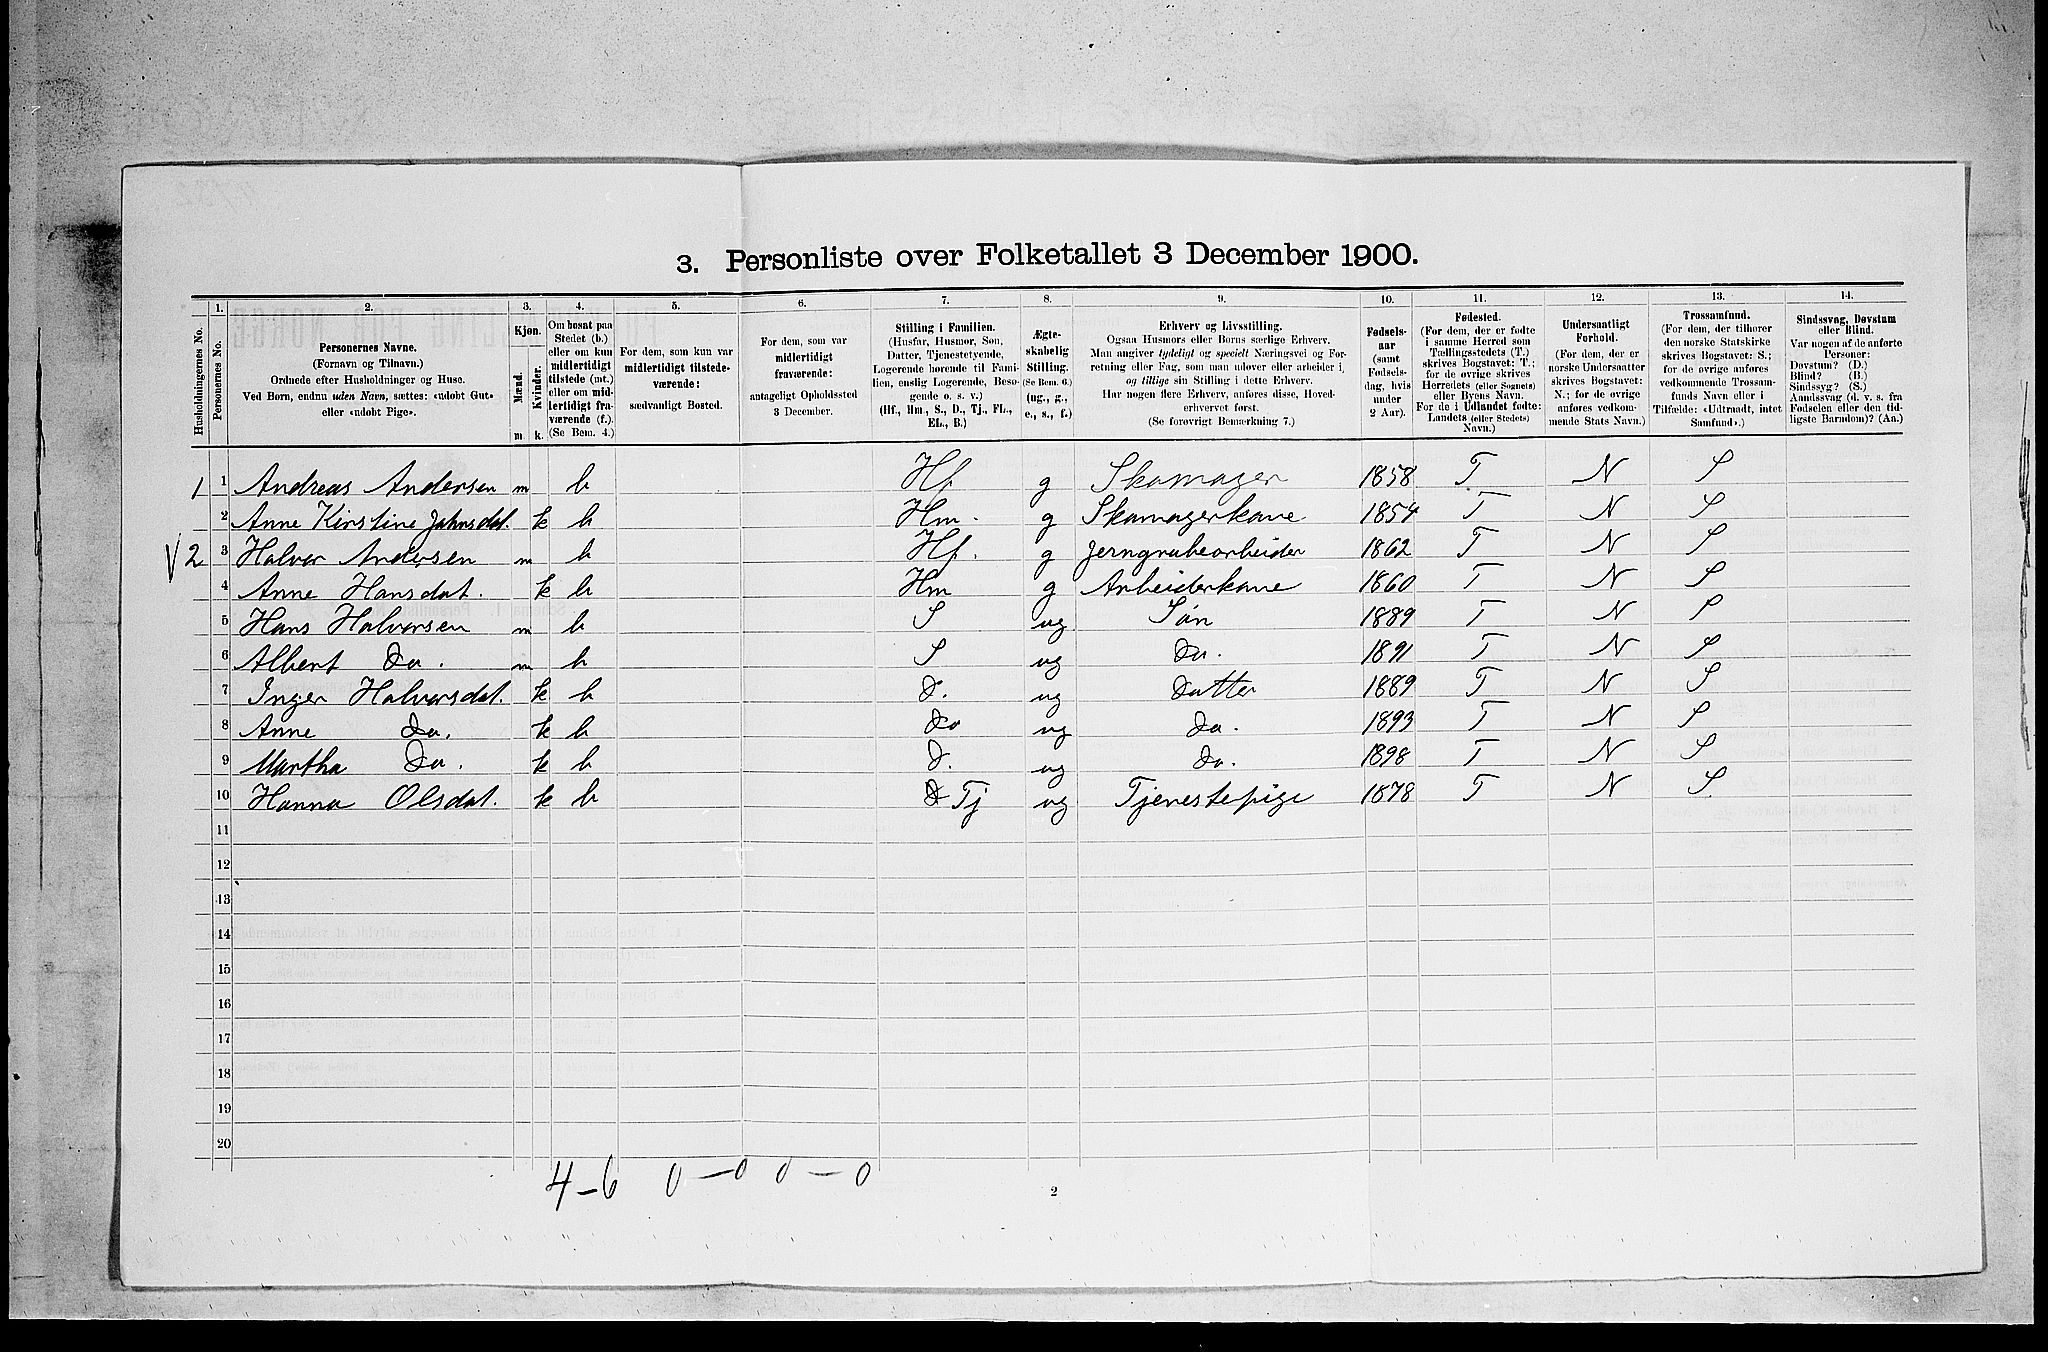 3. Personliste over Folketallet 3 December 1900.
1. 2. 3. 4. 5. 6. 7. 8. 9. 10. 11. 12. 13. 14.
Husholdningernes No.
Personernes No.
Personernes Navne.
(Fornavn og Tilnavn.)
Ordnede efter Husholdninger og Huse.
Ved Børn, endnu uden Navn, sættes: «udøbt Gut»
eller «udøbt Pige».
Kjøn.
Mænd.
Kvinder.
m k.
Om bosat paa
Stedet (b.)
eller om kun
midlertidigt
tilstede (mt.)
eller om mid-
lertidigt fra-
værende (f.).
(Se Bem. 4.)
For dem, som kun var
midlertidigt tilstede-
værende:
sædvanligt Bosted.
For dem, som var
midlertidigt
fraværende:
antageligt Opholdssted
3 December.
Stilling i Familien.
(Husfar, Husmor, Søn,
Datter, Tjenestetyende,
Logerende hørende til Fami-
lien, enslig Logerende, Besø-
gende o. s. v.)
(Hf., Hm., S., D., Tj., FL.,
EL., B.)
Ægte-
skabelig
Stilling.
(Se Bem. 6.)
(ug., g.,
e., s., f.)
Erhverv og Livsstilling.
Ogsaa Husmors eller Børns særlige Erhverv.
Man angiver tydeligt og specielt Næringsvei og For-
retning eller Fag, som man udøver eller arbeider i,
og tillige sin Stilling i dette Erhverv.
Har nogen flere Erhverv, anføres disse, Hoved-
erhvervet først.
(Se forøvrigt Bemærkning 7.)
Fødsels-
aar
(samt
Fødsels-
dag, hvis
under
2 Aar).
Fødested.
(For dem, der er fødte
i samme Herred som
Tællingsstedets (T.)
skrives Bogstavet: T.;
for de øvrige skrives
Herredets (eller Sognets)
eller Byens Navn.
For de i Udlandet fødte:
Landets (eller Stedets)
Navn.)
Undersaatligt
Forhold.
(For dem, der er
norske Undersaatter
skrives Bogstavet:
N.; for de øvrige
anføres vedkom-
mende Stats Navn.)
Trossamfund.
(For dem, der tilhører
den norske Statskirke
skrives Bogstavet: S.;
for de øvrige anføres
vedkommende Trossam-
funds Navn eller i
Tilfælde: «Udtraadt, intet
Samfund».)
Sindssvag, Døvstum
eller Blind.
Var nogen af de anførte
Personer:
Døvstum? (D.)
Blind? (B.)
Sindssyg? (S.)
Aandssvag (d. v. s. fra
Fødselen eller den tid-
ligste Barndom)? (Aa.)
1 1 Andreas Andersen m b Hf g Skomager 1858 T N S
2 Anne Kirstine Jahnsdat. k b Hm. g Skomagerkone 1854 T N S
V 2 3 Halvor Andersen m b Hf. g Jerngrubearbeider 1862 T N S
4 Anne Hansdat. k b Hm g Arbeiderkone 1860 T N S
5 Hans Halvorsen m b S ug Søn 1889 T N S
6 Albert do. m b S ug do. 1891 T N S
7 Inger Halvorsdat. k b d. ug datter 1889 T N S
8 Anne do. k b do ug do. 1893 T N S
9 Martha do. k b d. ug do. 1898 T N S
10 Hanna Olsdat. k b d Tj ug Tjenestepige 1878 T N S
11
12
13
14
15
16
17
18
19
20
4-6 0-0 0-0
2